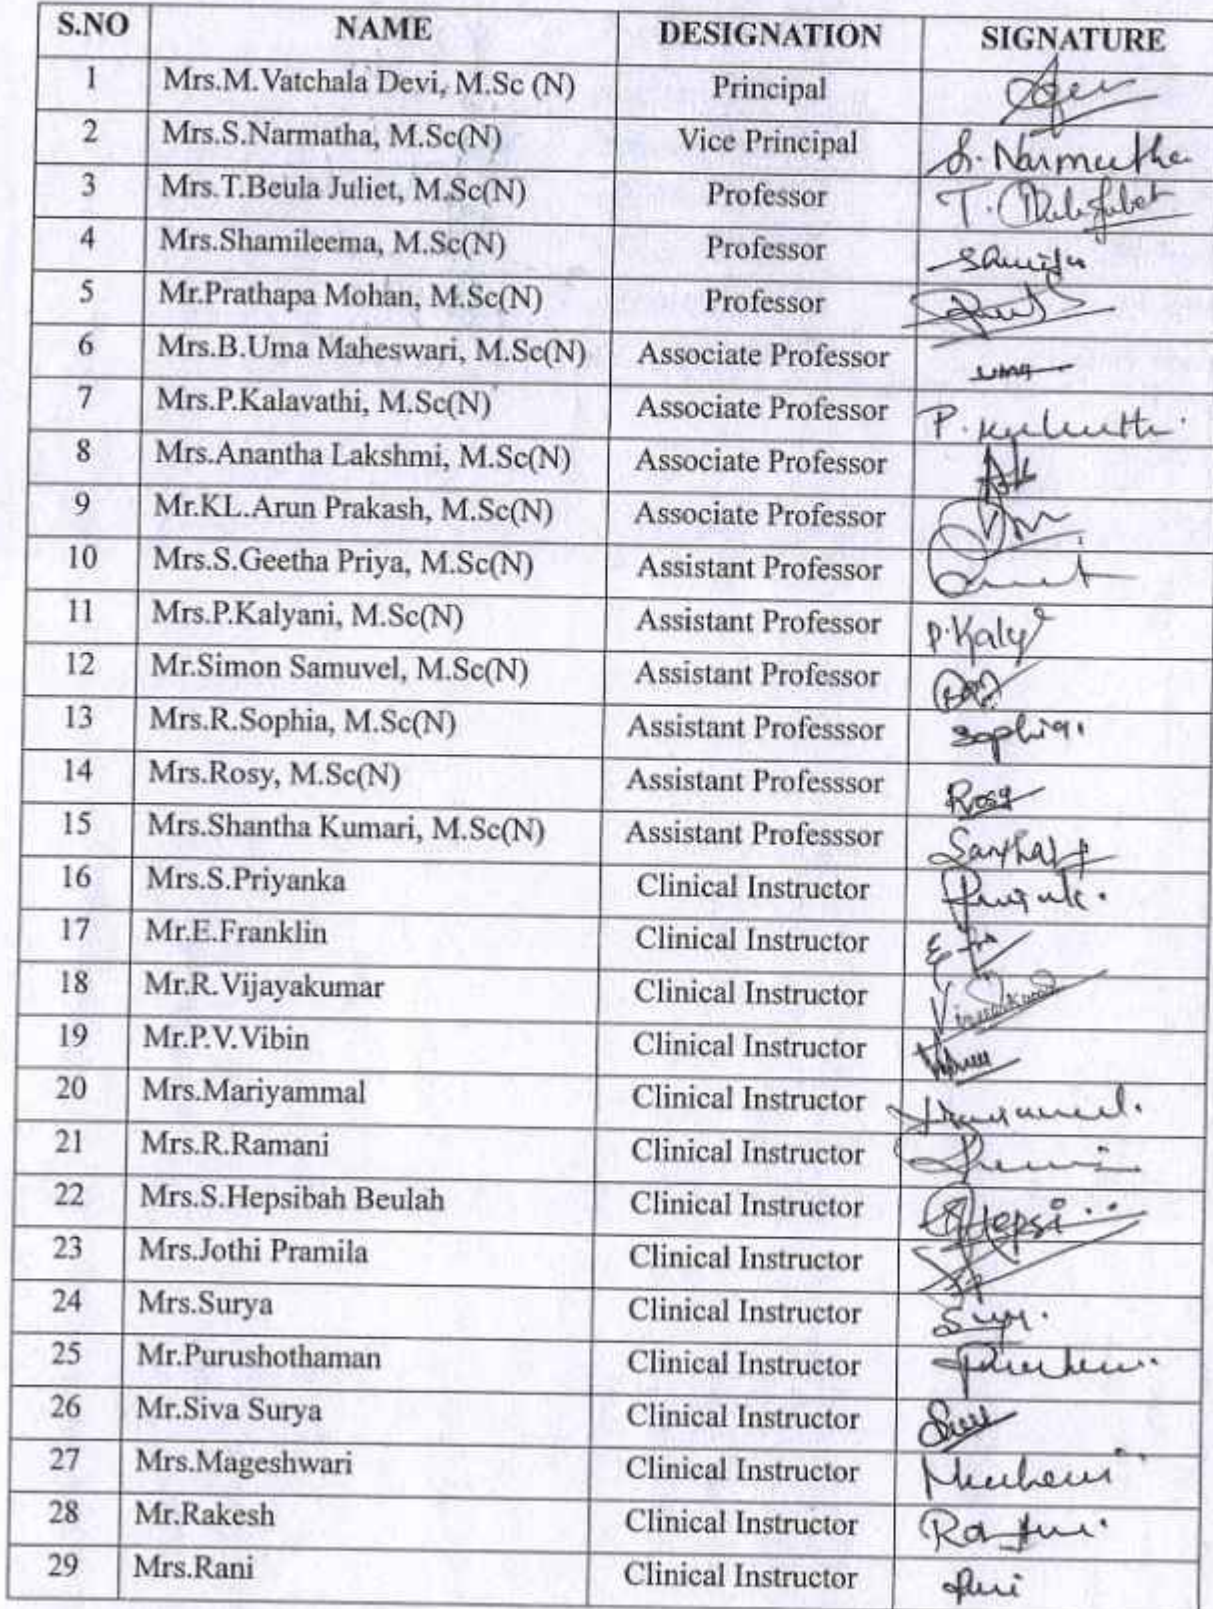 S.NO NAME DESIGNATION SIGNATURE
1 Mrs.M.Vatchala Devi, M.Sc (N) Principal
2 Mrs.S.Narmatha, M.Sc(N) Vice Principal S. Narmatha
3 Mrs.T.Beula Juliet, M.Sc(N) Professor
4 Mrs.Shamileema, M.Sc(N) Professor
5 Mr.Prathapa Mohan, M.Sc(N) Professor
6 Mrs.B.Uma Maheswari, M.Sc(N) Associate Professor uma
7 Mrs.P.Kalavathi, M.Sc(N) Associate Professor
8 Mrs.Anantha Lakshmi, M.Sc(N) Associate Professor
9 Mr.KL.Arun Prakash, M.Sc(N) Associate Professor
10 Mrs.S.Geetha Priya, M.Sc(N) Assistant Professor
11 Mrs.P.Kalyani, M.Sc(N) Assistant Professor P.Kaly
12 Mr.Simon Samuvel, M.Sc(N) Assistant Professor
13 Mrs.R.Sophia, M.Sc(N) Assistant Professsor Sophia.
14 Mrs.Rosy, M.Sc(N) Assistant Professsor Rosy
15 Mrs.Shantha Kumari, M.Sc(N) Assistant Professsor
16 Mrs.S.Priyanka Clinical Instructor
17 Mr.E.Franklin Clinical Instructor
18 Mr.R.Vijayakumar Clinical Instructor
19 Mr.P.V.Vibin Clinical Instructor
20 Mrs.Mariyammal Clinical Instructor
21 Mrs.R.Ramani Clinical Instructor
22 Mrs.S.Hepsibah Beulah Clinical Instructor Hepsi
23 Mrs.Jothi Pramila Clinical Instructor
24 Mrs.Surya Clinical Instructor
25 Mr.Purushothaman Clinical Instructor
26 Mr.Siva Surya Clinical Instructor
27 Mrs.Mageshwari Clinical Instructor
28 Mr.Rakesh Clinical Instructor
29 Mrs.Rani Clinical Instructor